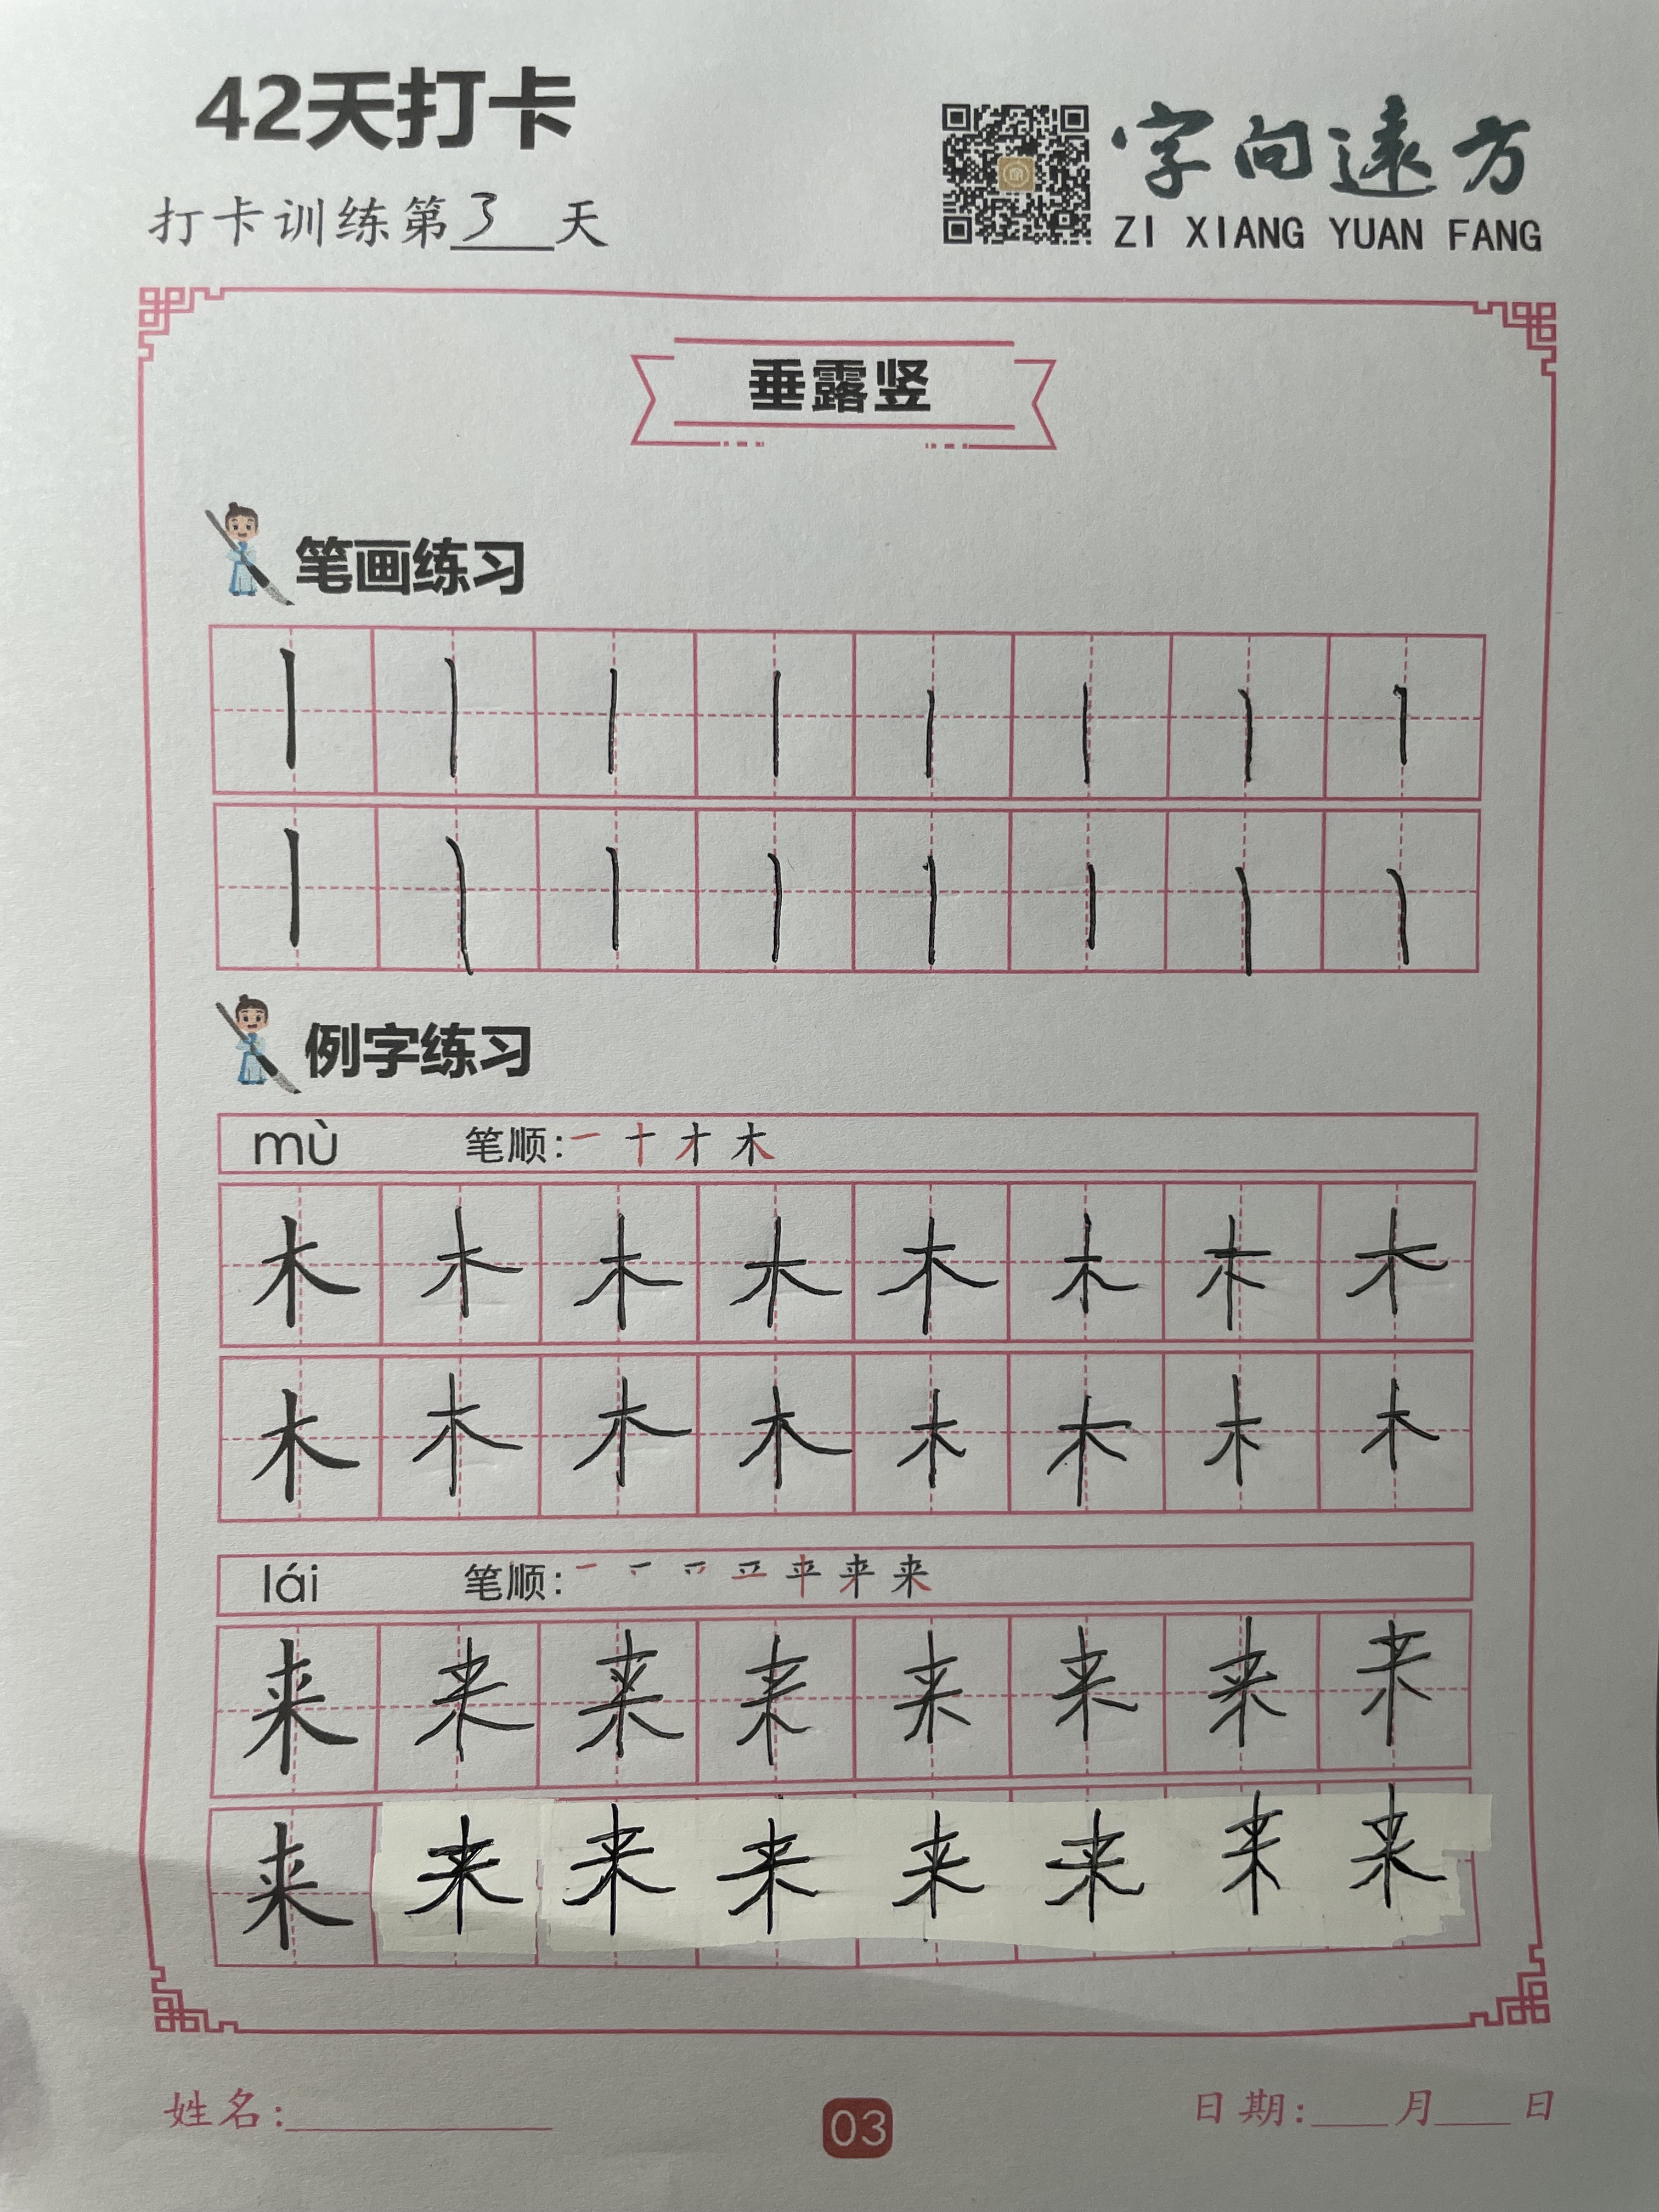 42天打卡
打卡训练第3天
字向遠方
ZI XIANG YUAN FANG
垂露竖
笔画练习
丨丨丨丨丨丨丨丨
丨丨丨丨丨丨丨丨
例字练习
mù 笔顺:一 十 才 木
木木木木木木木木
木木木木木木木木
lái 笔顺:
来来来来来来来来
来来来来来来来来
姓名:
03
日期:___月___日